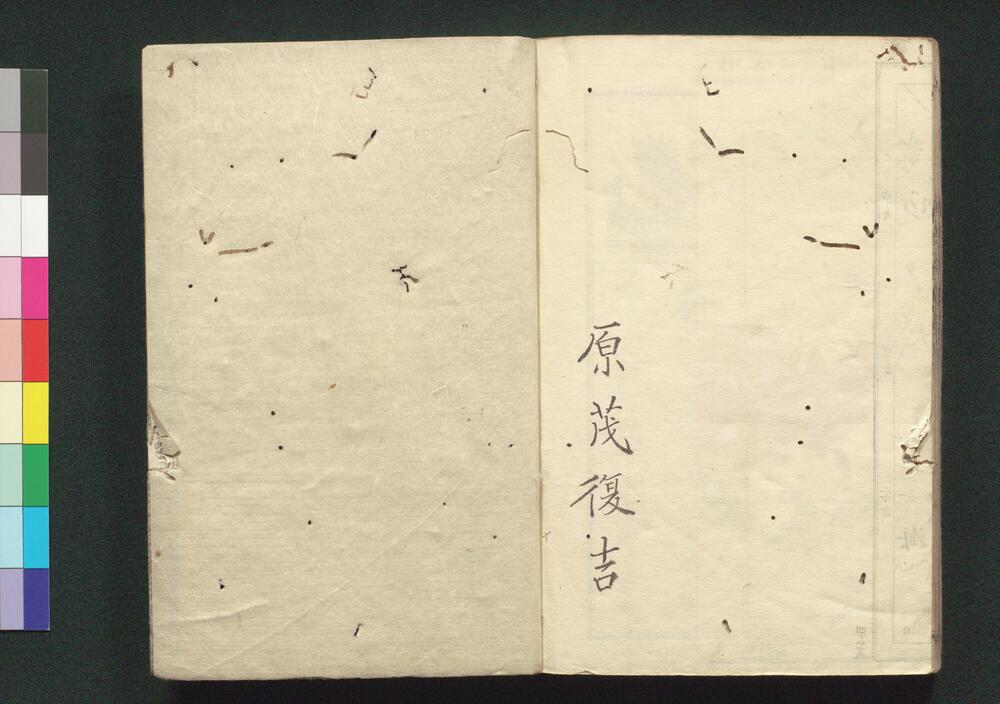 原茂復吉